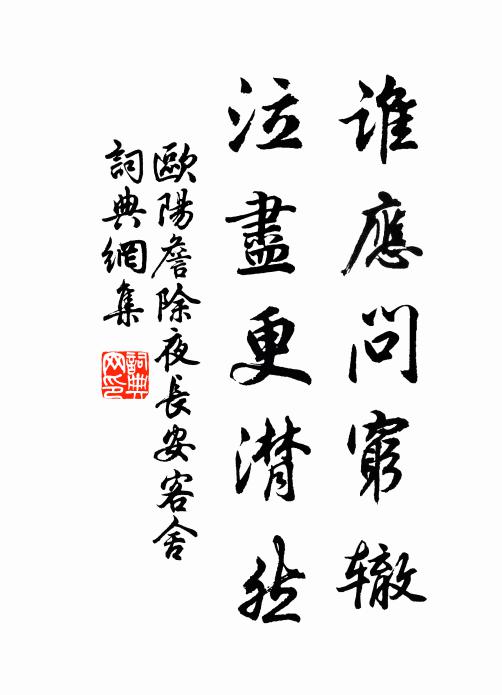 谁應問窮辙
泣盡更潸然
歐陽詹除夜長安客舍
詞典網集
詞典網印